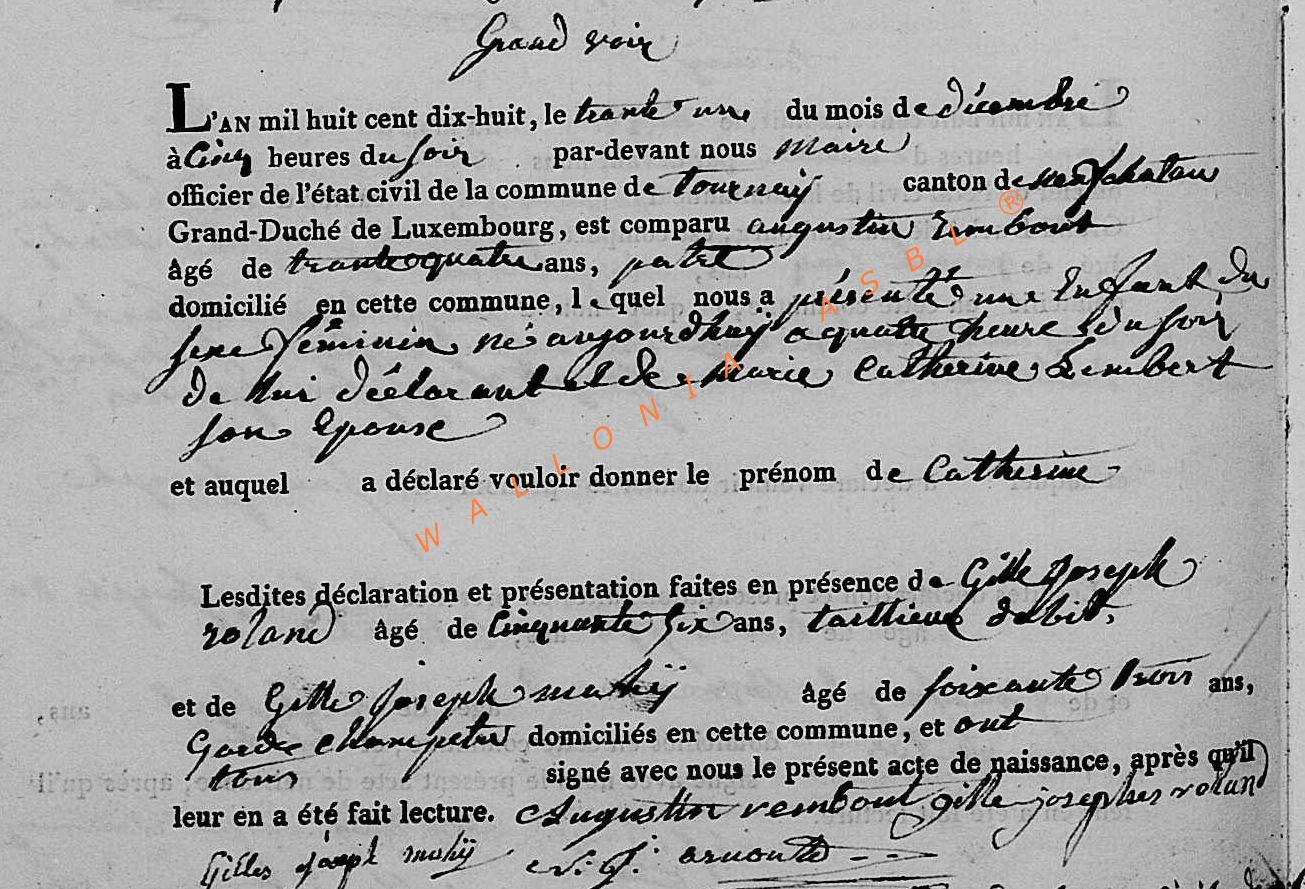 Grand voir
L'AN mil huit cent dix-huit, le trante une du mois de décembre
à Cinq heures du soir par-devant nous maire
officier de l'état civil de la commune de tournay canton de neufchatau
Grand-Duché de Luxembourg, est comparu augustin Rembout
âgé de trante quatre ans, patre
domicilié en cette commune, lequel nous a présenté une Enfant du
sexe féminin né aujourdhuÿ a quatre heure du soir
de lui déclarant et de marie Catherine Lembert
son Epouse
et auquel a déclaré vouloir donner le prénom de Catherine
Lesdites déclaration et présentation faites en présence de Gille Joseph
roland âgé de Cinquante six ans, taillieur dabit,
et de Gille Joseph mahÿ âgé de soixante trois ans,
Garde champetre domiciliés en cette commune, et ont
tous signé avec nous le présent acte de naissance, après qu'il
leur en a été fait lecture. Augustin rembout gille josephes roland
Gilles joseph mahÿ
WALLONIA ASBL ®